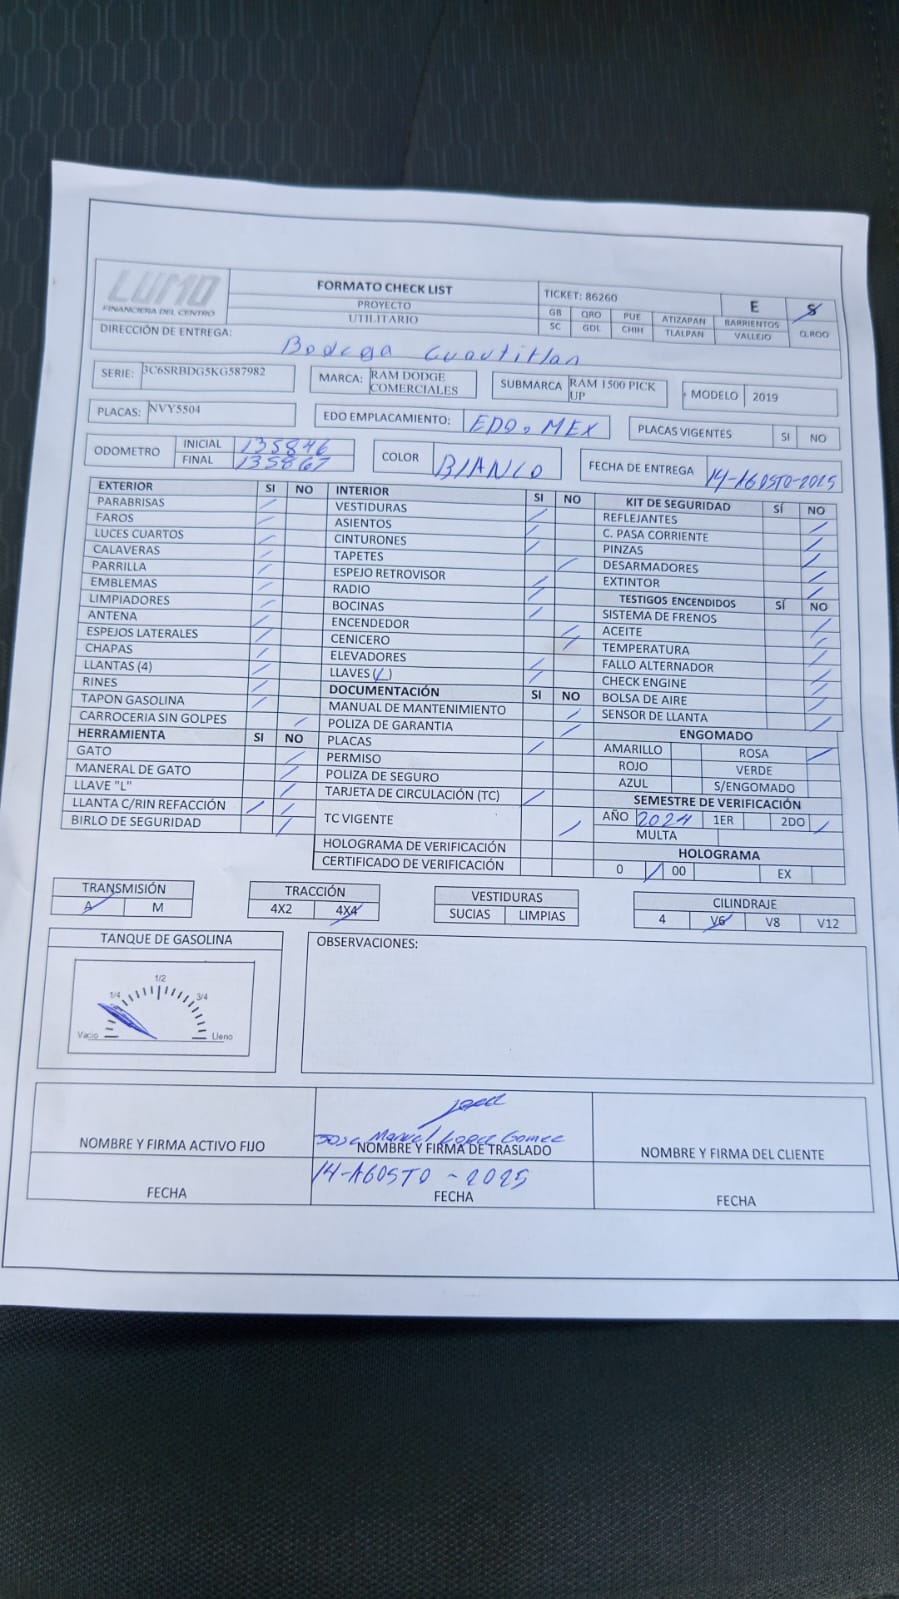 LUMO
FINANCIERA DEL CENTRO
FORMATO CHECK LIST
PROYECTO
UTILITARIO
TICKET: 86260 E S
GB QRO PUE ATIZAPAN BARRIENTOS Q.ROO
SC GDL CHIH TLALPAN VALLEJO
DIRECCIÓN DE ENTREGA: Bodega Cuautitlan
SERIE: 3C6SRBDG5KG587982 MARCA: RAM DODGE COMERCIALES SUBMARCA RAM 1500 PICK UP MODELO 2019
PLACAS: NVY5504 EDO EMPLACAMIENTO: EDO. MEX PLACAS VIGENTES SI NO
ODOMETRO INICIAL 135846
FINAL 135867
COLOR BlANCO FECHA DE ENTREGA 14-AGOSTO-2025
EXTERIOR SI NO
PARABRISAS
FAROS
LUCES CUARTOS
CALAVERAS
PARRILLA
EMBLEMAS
LIMPIADORES
ANTENA
ESPEJOS LATERALES
CHAPAS
LLANTAS (4)
RINES
TAPON GASOLINA
CARROCERIA SIN GOLPES
HERRAMIENTA SI NO
GATO
MANERAL DE GATO
LLAVE "L"
LLANTA C/RIN REFACCIÓN
BIRLO DE SEGURIDAD
INTERIOR SI NO
VESTIDURAS
ASIENTOS
CINTURONES
TAPETES
ESPEJO RETROVISOR
RADIO
BOCINAS
ENCENDEDOR
CENICERO
ELEVADORES
LLAVES ( )
DOCUMENTACIÓN SI NO
MANUAL DE MANTENIMIENTO
POLIZA DE GARANTIA
PLACAS
PERMISO
POLIZA DE SEGURO
TARJETA DE CIRCULACIÓN (TC)
TC VIGENTE
HOLOGRAMA DE VERIFICACIÓN
CERTIFICADO DE VERIFICACIÓN
KIT DE SEGURIDAD SÍ NO
REFLEJANTES
C. PASA CORRIENTE
PINZAS
DESARMADORES
EXTINTOR
TESTIGOS ENCENDIDOS SÍ NO
SISTEMA DE FRENOS
ACEITE
TEMPERATURA
FALLO ALTERNADOR
CHECK ENGINE
BOLSA DE AIRE
SENSOR DE LLANTA
ENGOMADO
AMARILLO ROSA
ROJO VERDE
AZUL S/ENGOMADO
SEMESTRE DE VERIFICACIÓN
AÑO 2024 1ER 2DO
MULTA
HOLOGRAMA
0 00 EX
TRANSMISIÓN
A M
TRACCIÓN
4X2 4X4
VESTIDURAS
SUCIAS LIMPIAS
CILINDRAJE
4 V6 V8 V12
TANQUE DE GASOLINA
1/2
1/4 3/4
Vacio Lleno
OBSERVACIONES:
NOMBRE Y FIRMA ACTIVO FIJO
FECHA
Jose Manuel Lopez Gomez
NOMBRE Y FIRMA DE TRASLADO
14-AGOSTO - 2025
FECHA
NOMBRE Y FIRMA DEL CLIENTE
FECHA